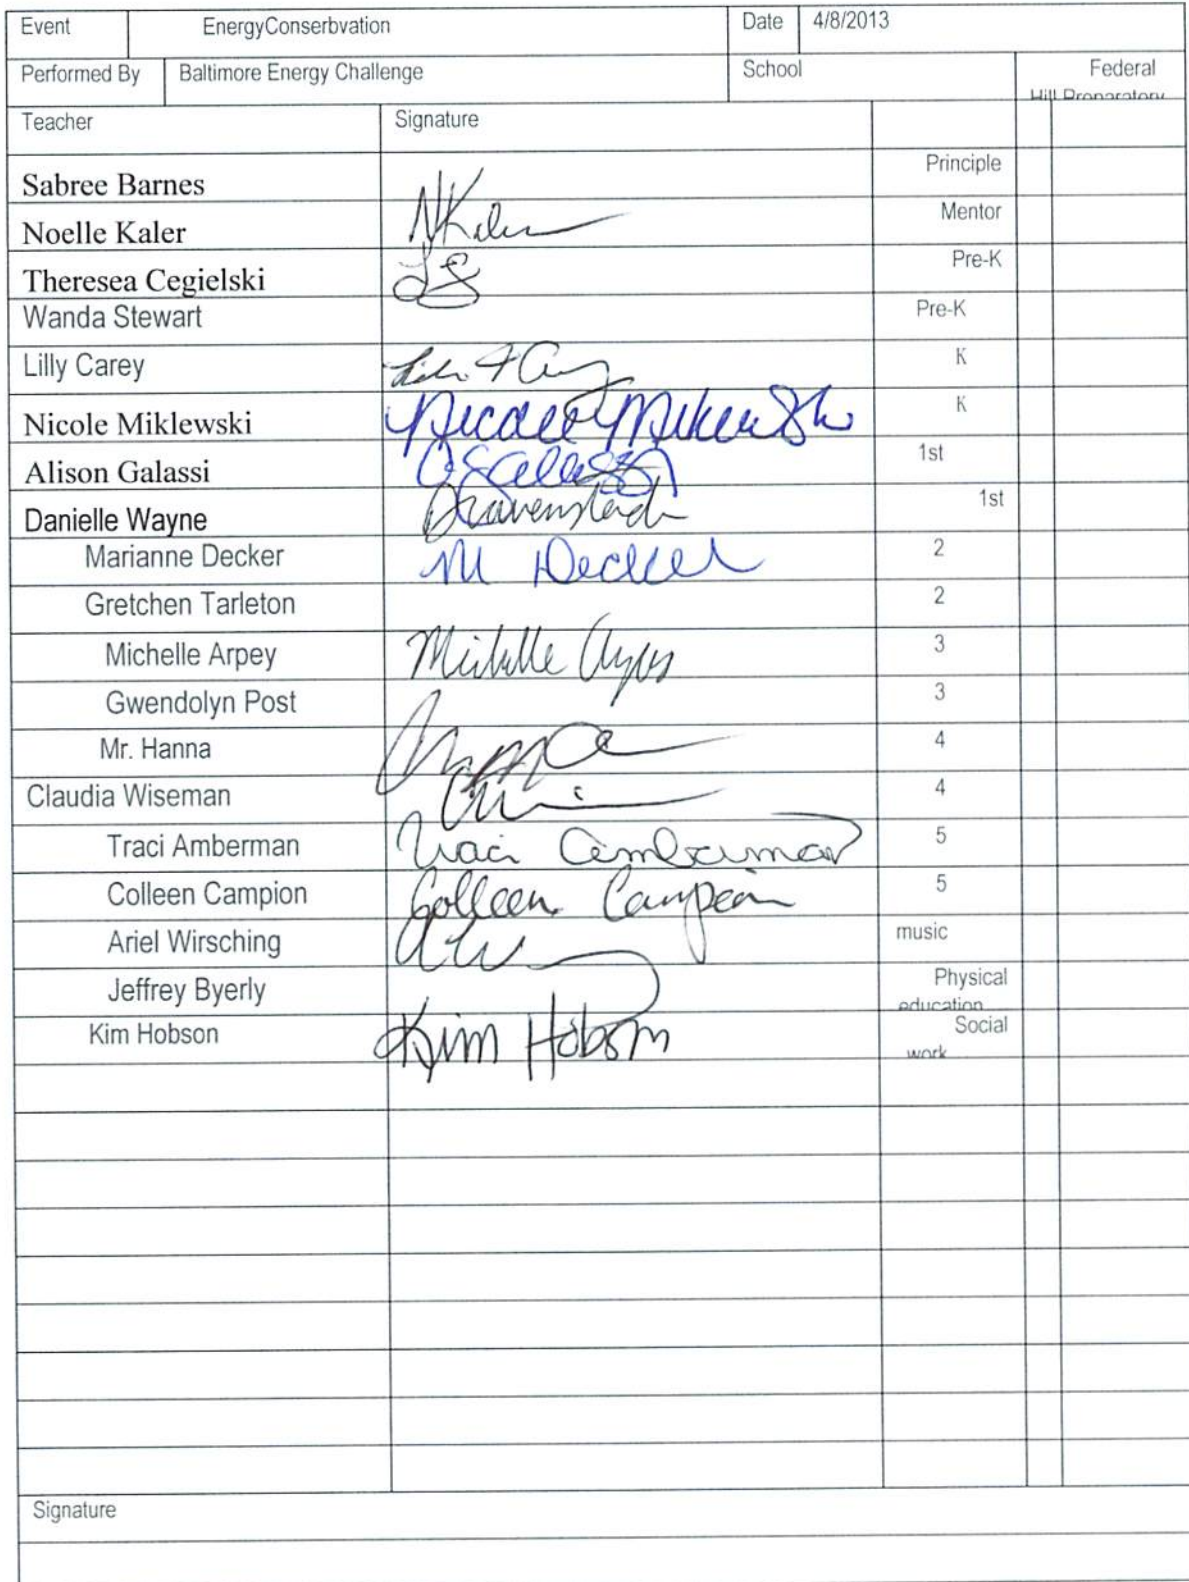 Event EnergyConserbvation Date 4/8/2013
Performed By Baltimore Energy Challenge School Federal
Hill Preparatory
Teacher Signature
Sabree Barnes Principle
Noelle Kaler NKaler Mentor
Theresea Cegielski Pre-K
Wanda Stewart Pre-K
Lilly Carey K
Nicole Miklewski K
Alison Galassi 1st
Danielle Wayne 1st
Marianne Decker M Decker 2
Gretchen Tarleton 2
Michelle Arpey Michelle 3
Gwendolyn Post 3
Mr. Hanna 4
Claudia Wiseman 4
Traci Amberman Traci Amberman 5
Colleen Campion Colleen Campion 5
Ariel Wirsching music
Jeffrey Byerly Physical
education
Kim Hobson Kim Hobson Social
work
Signature